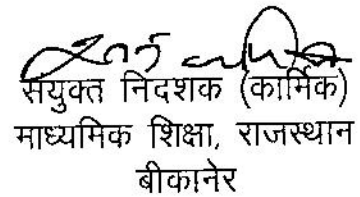 संयुक्त निदशक (कार्मिक)
माध्यमिक शिक्षा, राजस्थान
बीकानेर